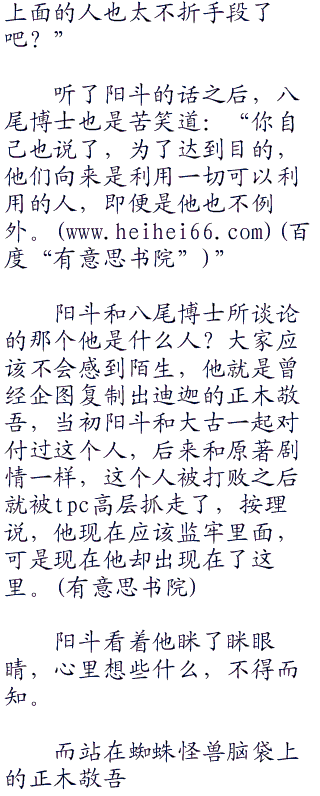 上面的人也太不折手段了
吧？”
听了阳斗的话之后，八
尾博士也是苦笑道：“你自
己也说了，为了达到目的，
他们向来是利用一切可以利
用的人，即便是他也不例
外。(www.heihei66.com)(百
度“有意思书院”)”
阳斗和八尾博士所谈论
的那个他是什么人？大家应
该不会感到陌生，他就是曾
经企图复制出迪迦的正木敬
吾，当初阳斗和大古一起对
付过这个人，后来和原著剧
情一样，这个人被打败之后
就被tpc高层抓走了，按理
说，他现在应该监牢里面，
可是现在他却出现在了这
里。(有意思书院)
阳斗看着他眯了眯眼
睛，心里想些什么，不得而
知。
而站在蜘蛛怪兽脑袋上
的正木敬吾